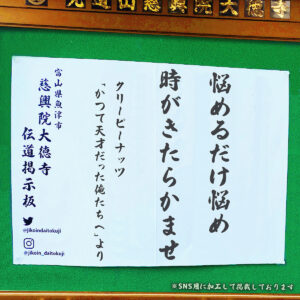 光道山慈興院大徳寺
悩めるだけ悩め
時がきたらかませ
クリーピーナッツ
「かつて天才だった俺たちへ」より
富山県魚津市
慈興院大徳寺
伝道掲示板
@jikoindaitokuji
@jikoin_daitokuji
※SNS用に加工して掲載しております